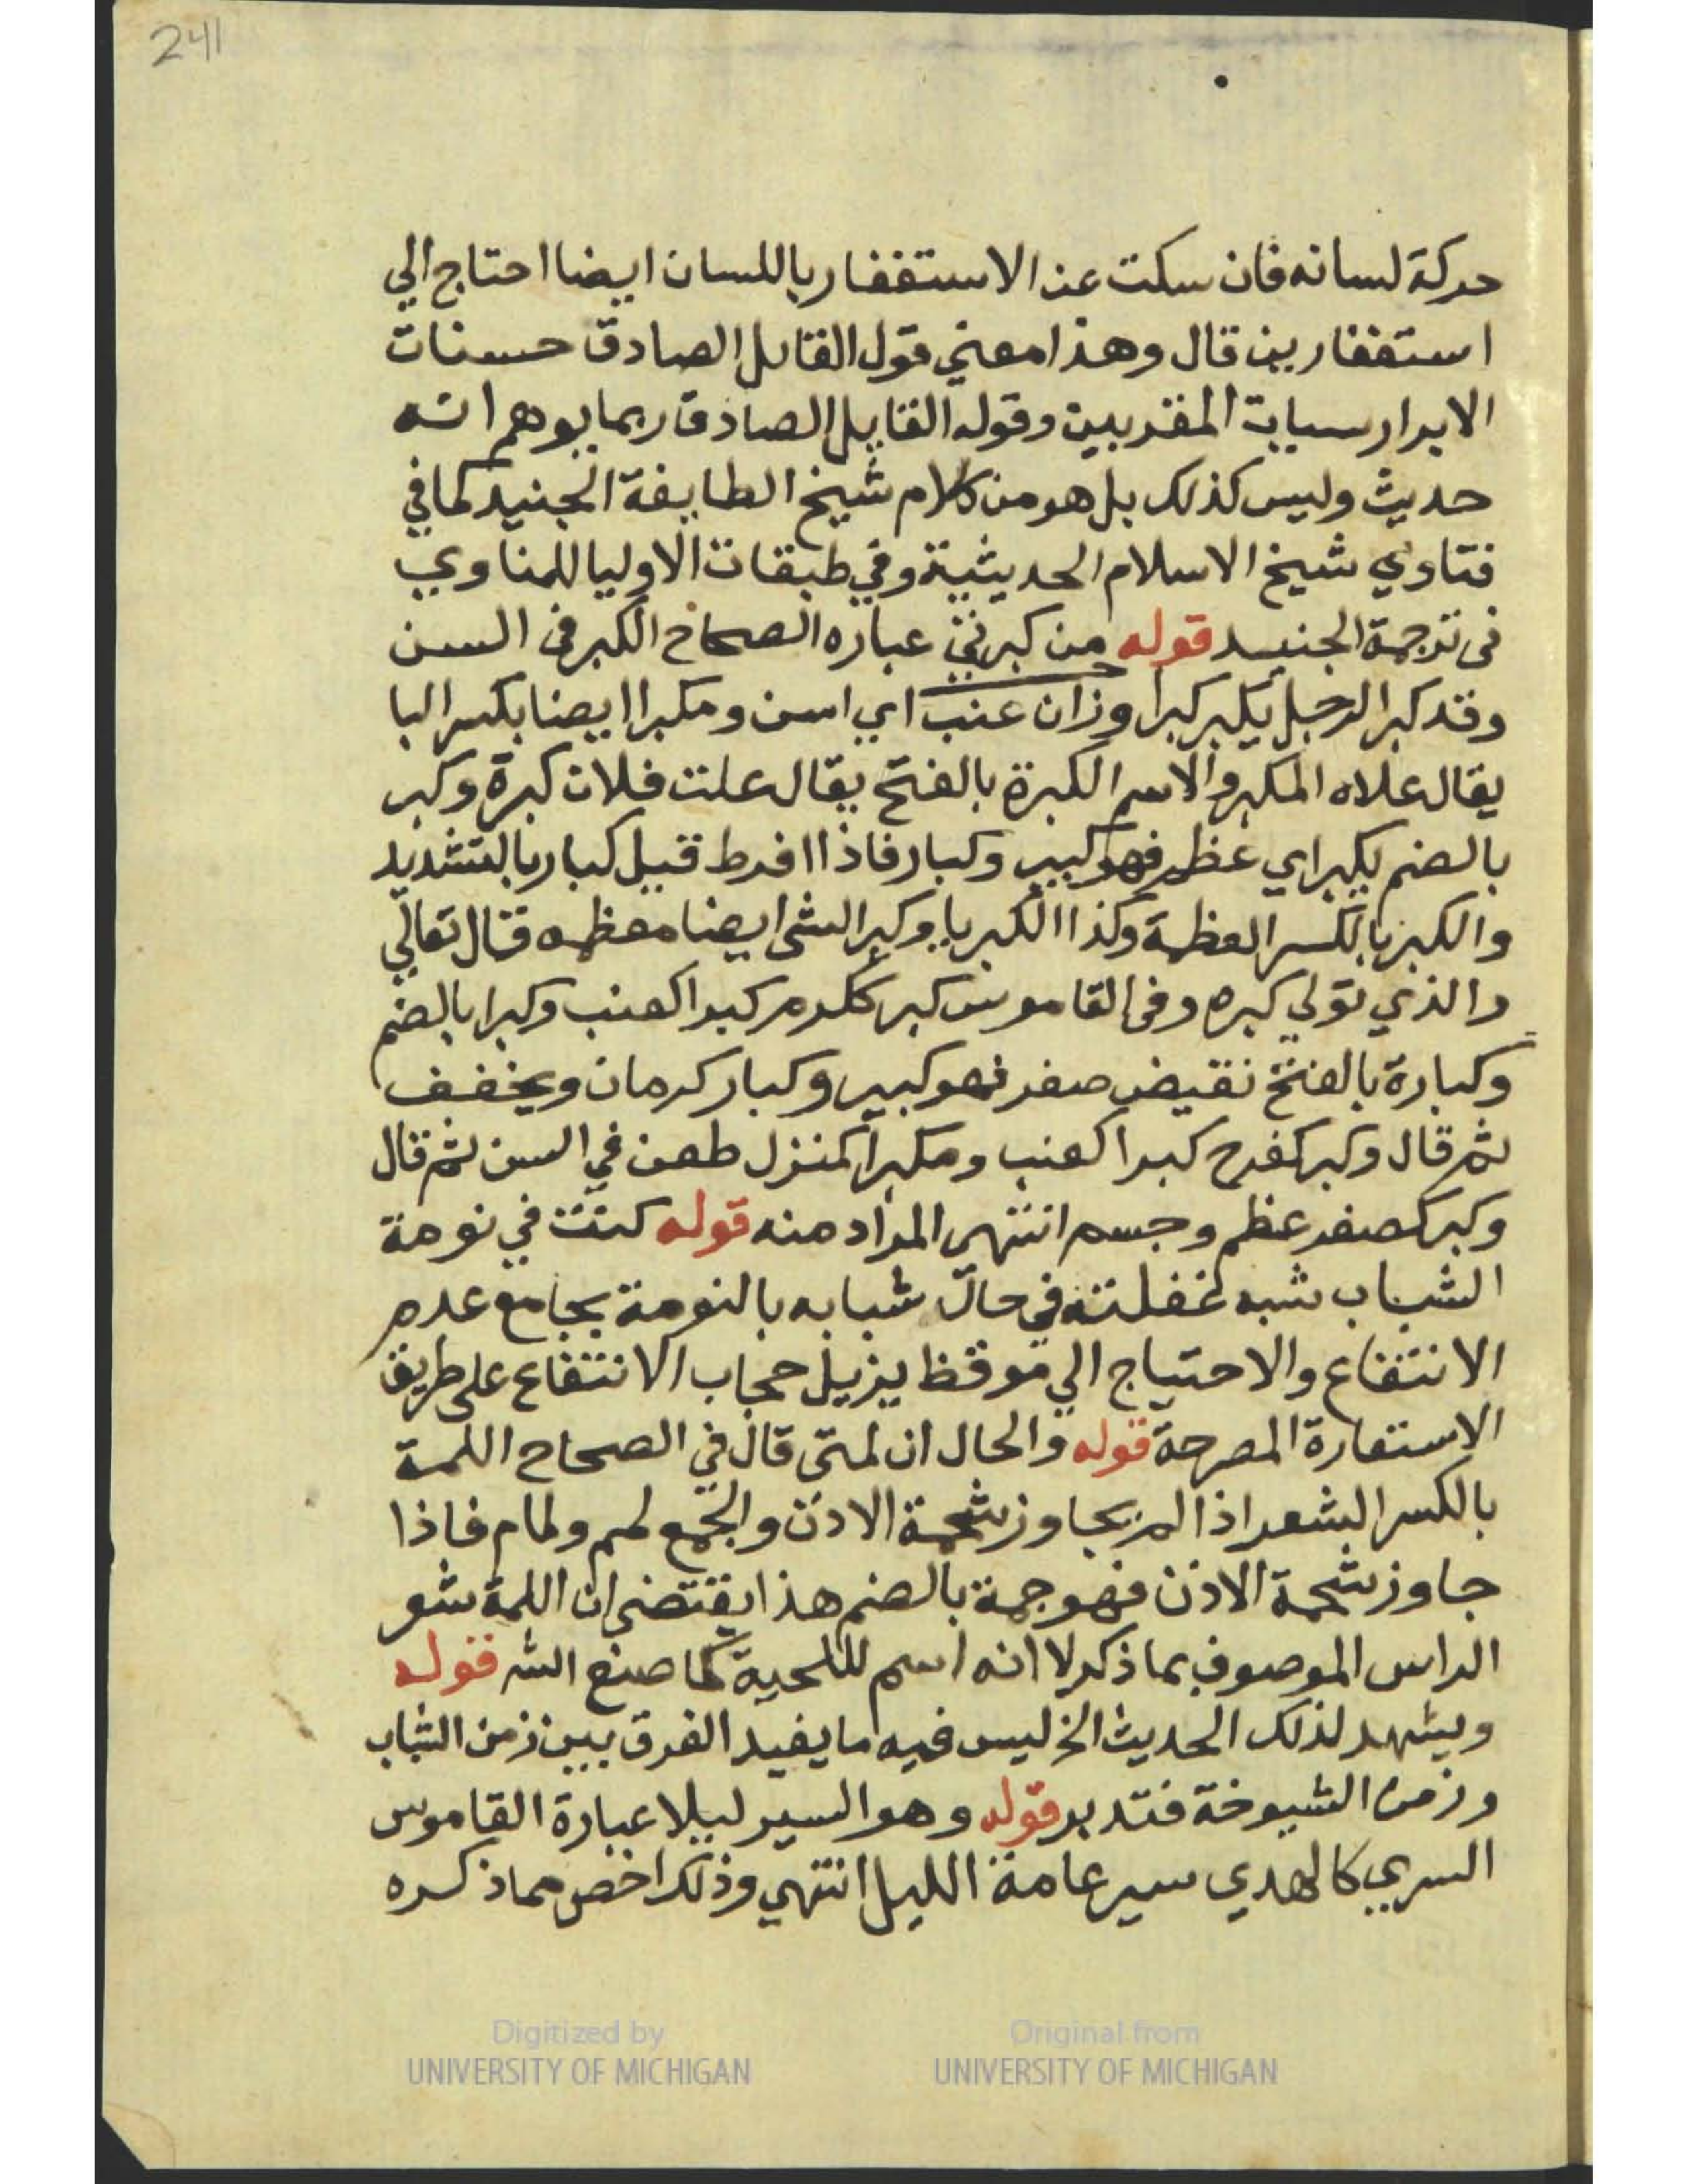 241
حركة لسانه فان سكت عن الاستغفار باللسان ايضا احتاج الي
استغفارين قال وهذا معني قول القائل الصادق حسنات
الابرار سيات المقربين وقوله القايل الصادق ربما يوهم انه
حديث وليس كذلك بل هو من كلام شيخ الطايفة الجنيد كما في
فتاوي شيخ الاسلام الحديثية وفي طبقات الاوليا للمناوي
في ترجمة الجنيد قوله من كبرتي عباره الصحاح الكبر في السن
وقد كبر الرجل يكبر كبرا وزان عنب اي اسن ومكبرا ايضا بكسر البا
يقال علاه المكبر والاسم الكبرة بالفتح يقال علت فلان كبرة وكبر
بالضم يكبر اي عظم فهو كبير وكبار فاذا افرط قيل كبار بالتشديد
والكبر بالكسر العظمة وكذا الكبريا وكبر الشي ايضا معظمه قال تعالي
والذي تولي كبره وفي القاموس كبر ككرم كبرا كعنب وكبرا بالضم
وكبارة بالفتح نقيض صغر فهو كبير وكبار كرمان ويخفف
ثم قال وكبر كفرح كبرا كعنب ومكبرا كمنزل طعن في السن ثم قال
وكبر كصغر عظم وجسم انتهي المراد منه قوله كنت في نومة
الشباب شبه غفلته في حال شبابه بالنومة بجامع عدم
الانتفاع والاحتياج الي موقظ يزيل حجاب الانتفاع على طريق
الاستعارة المصرحة قوله والحال ان لمتي قال في الصحاح اللمة
بالكسر الشعر اذا لم يجاوز شحمة الاذن والجمع لمم ولمام فاذا
جاوز شحمة الاذن فهو جمة بالضم هذا يقتضي ان اللمة شعر
الراس الموصوف بما ذكر لا انه اسم للحية كما صنع الشه قوله
ويشهد لذلك الحديث الخ ليس فيه ما يفيد الفرق بين زمن الشباب
وزمن الشيوخة فتدبر قوله وهو السير ليلا عبارة القاموس
السري كالهدي سير عامة الليل انتهي وذلك اخص مما ذكره
Digitized by
UNIVERSITY OF MICHIGAN
Original from
UNIVERSITY OF MICHIGAN